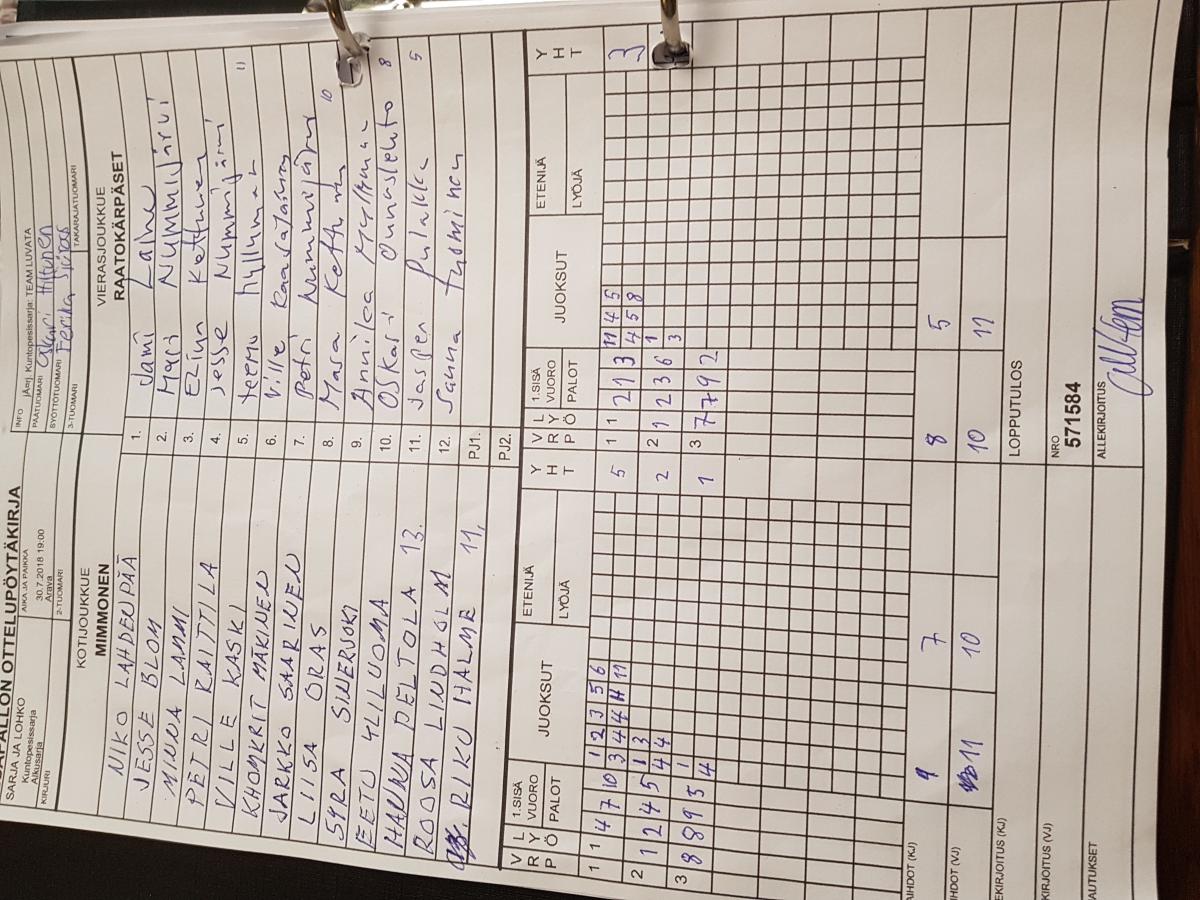 SAPALLON OTTELUPÖYTÄKIRJA
SARJA JA LOHKO
Kuntopesissarja
Alkusarja
KIRJURI
AIKA JA PAIKKA
30.7.2018 19:00
Arava
2-TUOMARI
INFO
jÄrj. Kuntopesissarja: TEAM LUVATA
PÄÄTUOMARI Oskari Hiltunen
SYÖTTÖTUOMARI
3-TUOMARI
TAKARAJATUOMARI
KOTIJOUKKUE
MIMMONEN
VIERASJOUKKUE
RAATOKÄRPÄSET
NIKO LAHDENPÄÄ 1. Jami Laine
JESSE BLOM 2. Mari NUMMIJärvi
MINNA LAMMI 3. Elina Kettunen
PETRI RAITTILA 4. Jesse Nummijärvi
VILLE KASKI 5. teemu hyllumaa 11
KHOMKRIT MÄKINEN 6. Ville
JARKKO SAARINEN 7. Petri Nummijärvi
LIISA ORAS 8. Masa Kettunen 10
SYRA SINERVOKI 9. Annikea
EETU YLILUOMA 10. OSKARI 8
HANNA PELTOLA 13. 11. Jasper Pulakka 5
ROOSA LINDHOLM 12. Sanna tuominen
RIKU HALME 11, PJ1.
PJ2.
V R L Y Ö P 1.SISÄ VUORO PALOT JUOKSUT ETENIJÄ LYÖJÄ Y H T V R P L Y Ö 1.SISÄ VUORO PALOT JUOKSUT ETENIJÄ LYÖJÄ Y H T
1 1 4 7 10 1 2 3 5 6 5 1 1 2 1 3 11 4 5 3
3 4 4 11 11 4 5 8
2 1 2 4 5 1 3 2 2 1 2 3 6 1
4 4 3
3 8 8 9 5 1 1 3 7 7 9 2
4
AIHDOT (KJ) 9 7 8 5
IHDOT (VJ) 11 10 10 11
EKIRJOITUS (KJ)
KIRJOITUS (VJ)
AUTUKSET
LOPPUTULOS
NRO
571584
ALLEKIRJOITUS